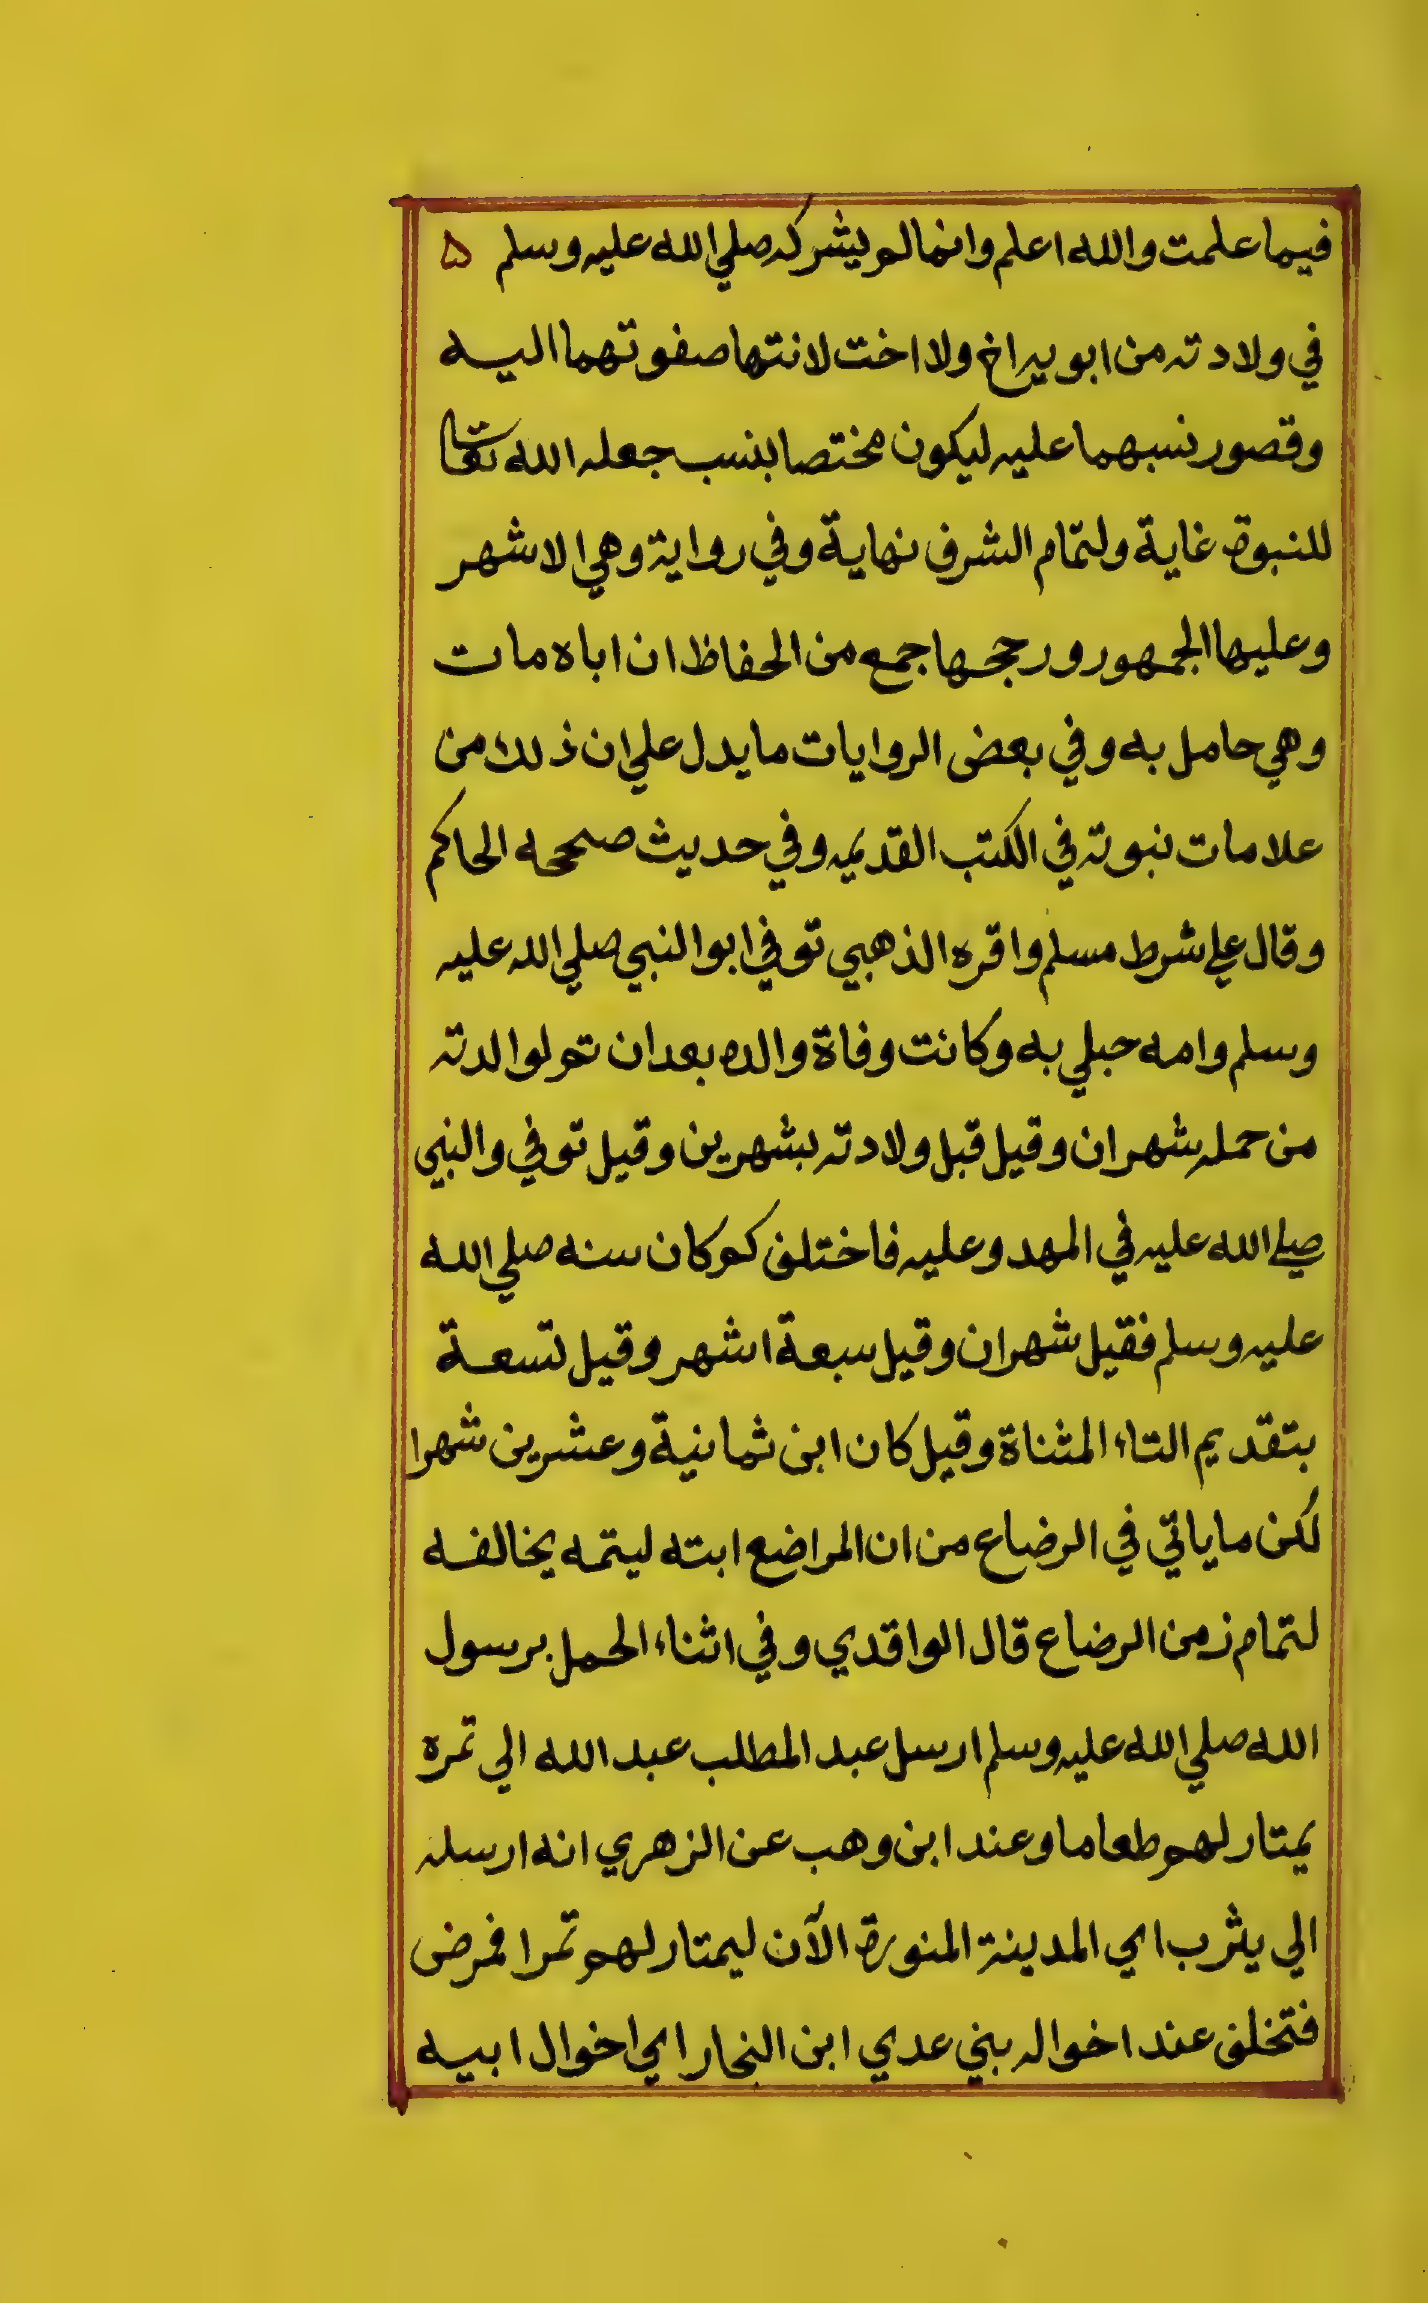 فيما علمت والله اعلم وانما لم يشركه صلي الله عليه وسلم ۵
في ولادته من ابويه اخ ولا اخت لانتها صفوتهما اليه
وقصور نسبهما عليه ليكون مختصا بنسب جعله الله تعا
للنبوة غاية ولتمام الشرف نهاية وفي رواية وهي الاشهر
وعليها الجمهور ورجحها جمع من الحفاظ ان اباه مات
وهي حامل به وفي بعض الروايات ما يدل علي ان ذلك من
علامات نبوته في الكتب القديمه وفي حديث صححه الحاكم
وقال علي شرط مسلم واقره الذهبي توفي ابو النبي صلي الله عليه
وسلم وامه حبلي به وكانت وفاة والده بعد ان تم لوالدته
من حمله شهران وقيل قبل ولادته بشهرين وقيل توفي والنبي
صلي الله عليه في المهد وعليه فاختلف كم كان سنه صلي الله
عليه وسلم فقيل شهران وقيل سبعة اشهر وقيل تسعة
بتقديم التاء المثناة وقيل كان ابن ثمانية وعشرين شهرا
لكن ما ياتي في الرضاع من ان المراضع ابته ليتمه يخالفه
لتمام زمن الرضاع قال الواقدي وفي اثناء الحمل برسول
الله صلي الله عليه وسلم ارسل عبد المطلب عبد الله الي تمره
يمتار لهم طعاما وعند ابن وهب عن الزهري انه ارسله
الي يثرب اي المدينة المنورة الآن ليمتار لهم تمرا فمرض
فتخلف عند اخواله بني عدي ابن النجار اي اخوال ابيه